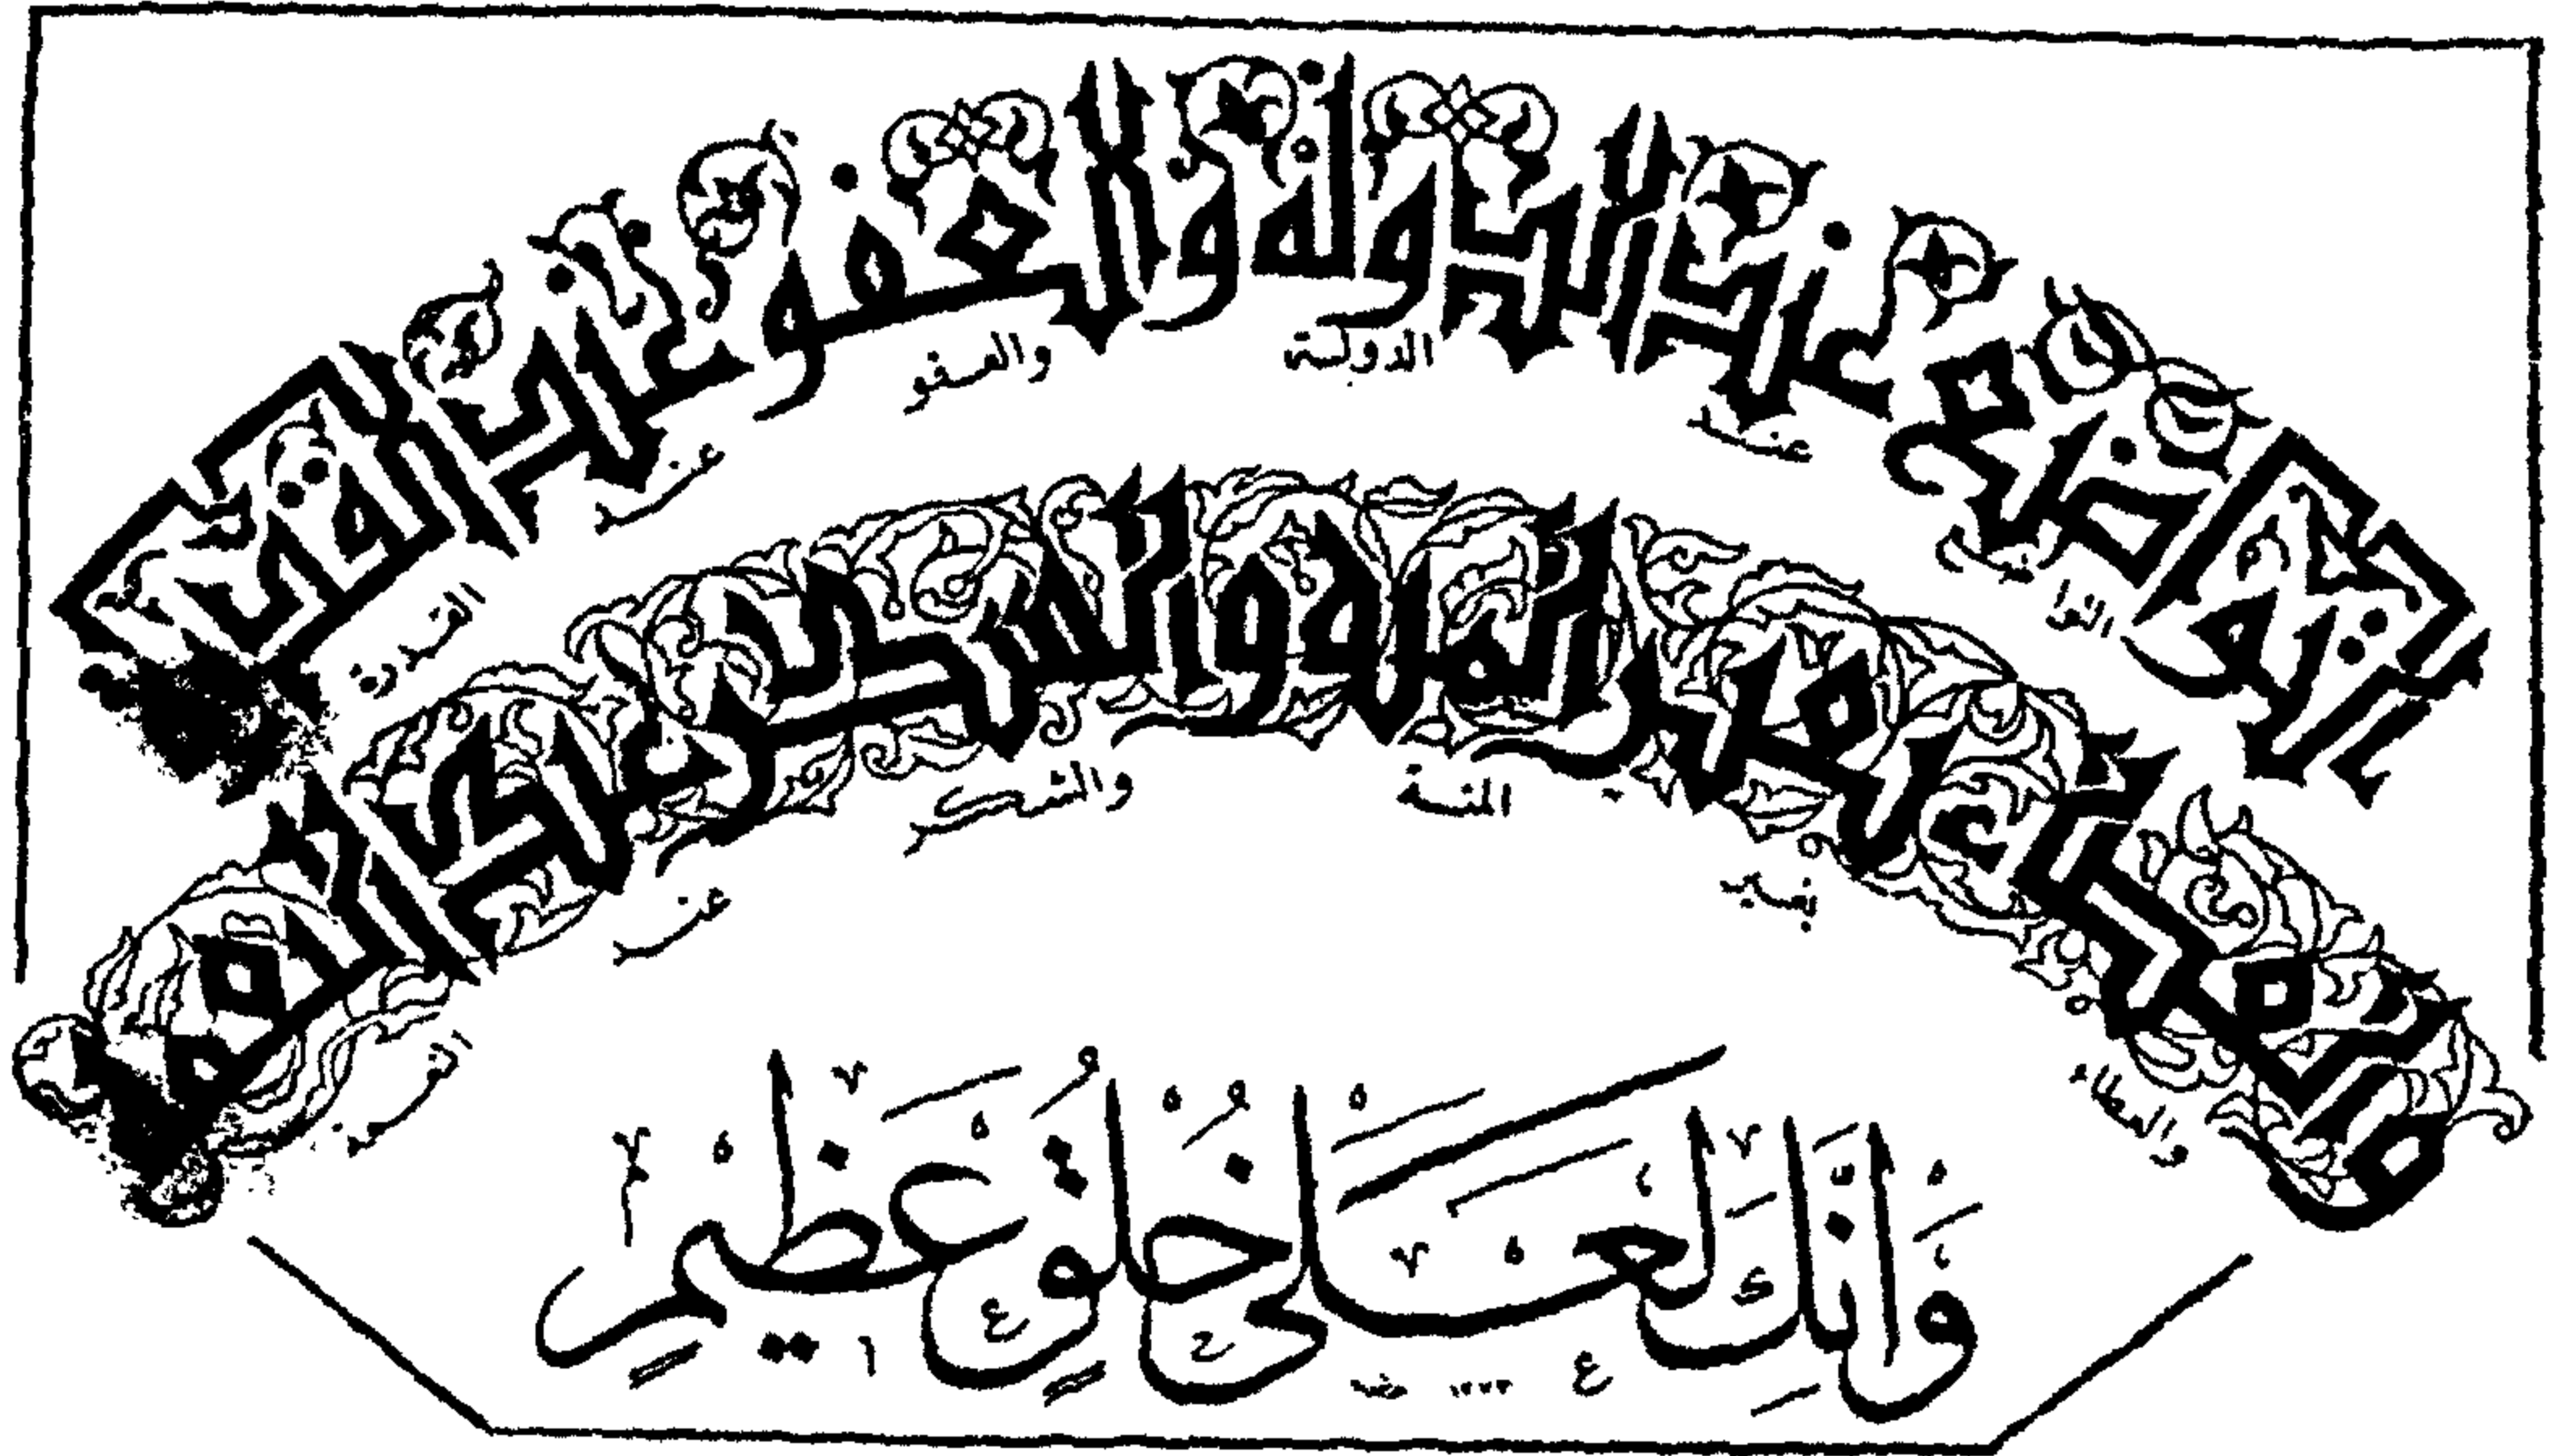 التواضع عند الدولة والعفو عند القدرة
التواضع عند الدولة والعفو عند القدرة
والعطاء بغير المنة والشكر عند النعمة
والعطاء بغير المنة والشكر عند النعمة
وَإِنَّكَ لَعَلَىٰ خُلُقٍ عَظِيمٍ